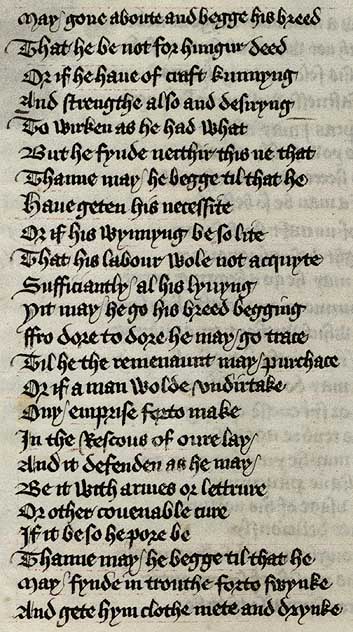 May gone aboute and begge his breed
That he be not for hungur deed
Or if he haue of craft kunnyng
And strengthe also and desiryng
To wirken as he had what
But he fynde neithir this ne that
Thanne may he begge til that he
Haue geten his necessite
Or if his wynnyng be so lite
That his labour wole not acquyte
Sufficiantly al his lyuyng
Yit may he go his breed begging
ffro dore to dore he may go trace
Til he the remenaunt may purchace
Or if a man wolde vndirtake
Ony emprise forto make
In the Rescous of oure lay
And it defenden as he may
Be it with armes or lettrure
Or other couenable cure
If it be so he pore be
Thanne may he begge til that he
May fynde in trouthe forto swynke
And gete hym clothe mete and drynke